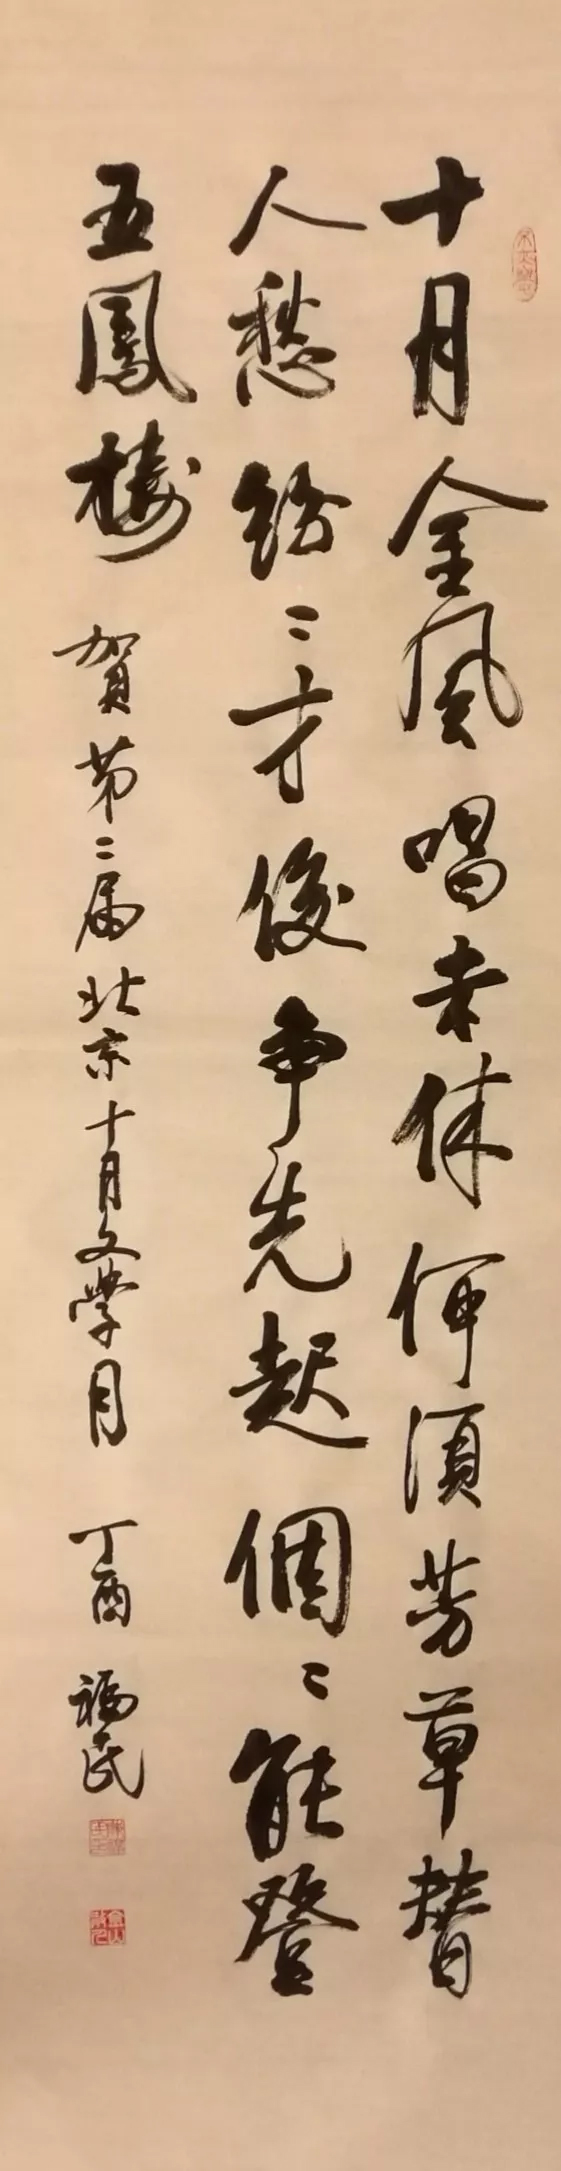 十月金風唱未休何須芳草替
人愁紛〻才俊争先起個〻能登
五鳳樓
賀第二届北京十月文學月 丁酉 福民